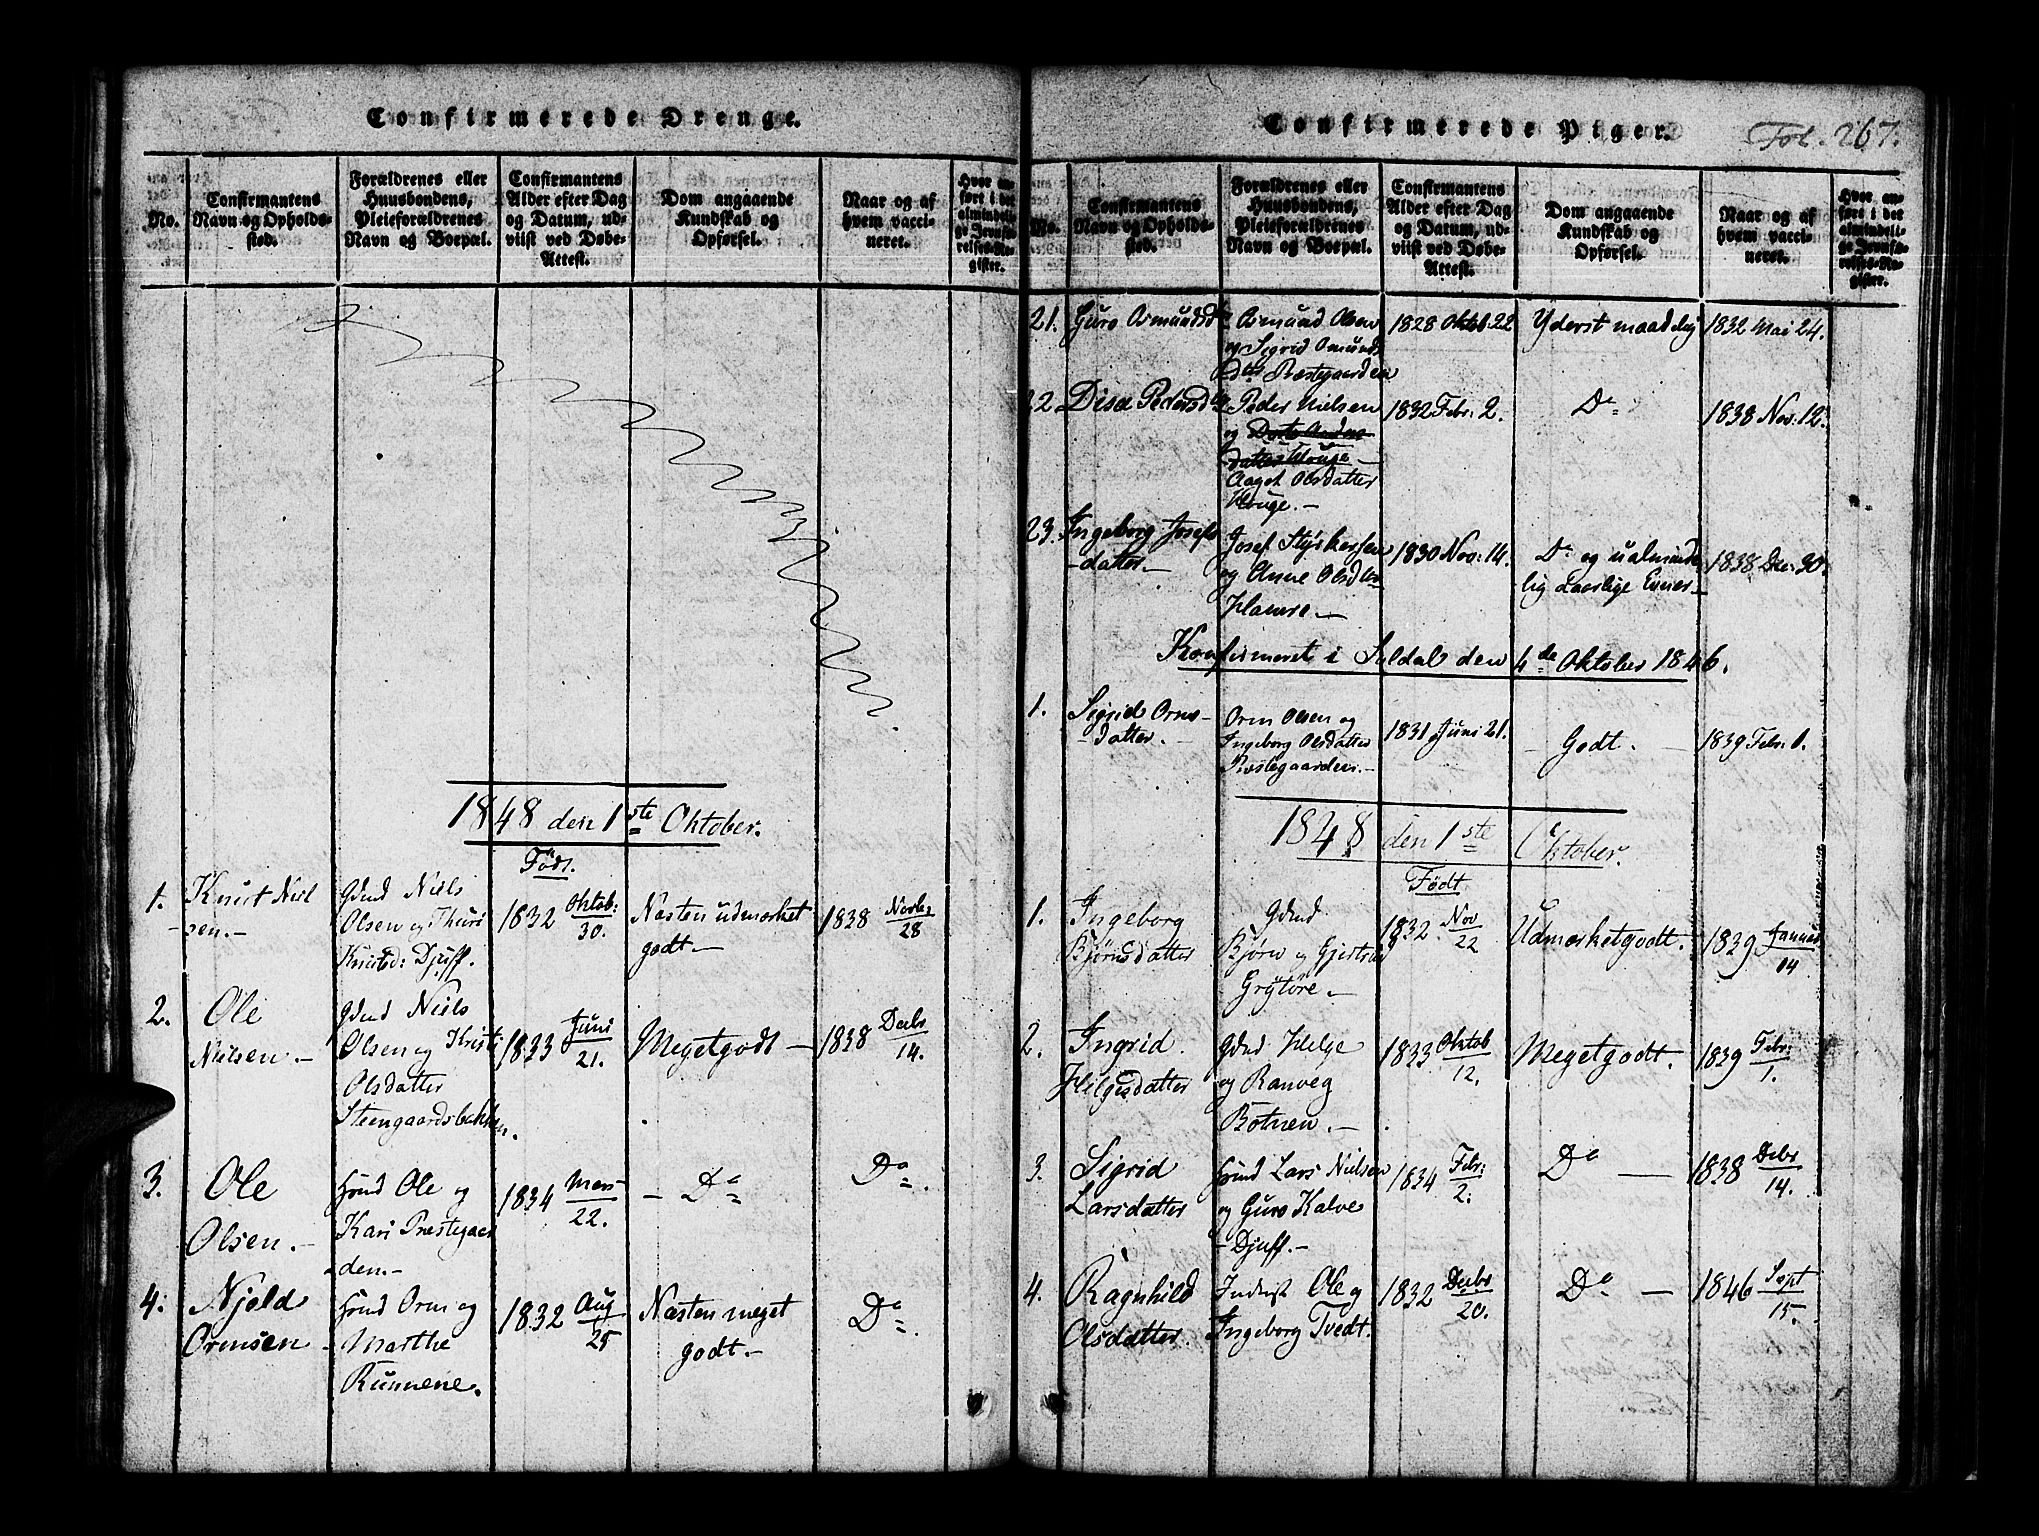 Confirmerede Drenge.
No.
Confirmantens
Navn og Opholds-
sted.
Forældrenes eller
Huusbondens,
Pleieforældrenes
Navn og Boepæl.
Confirmantens
Alder efter Dag
og Datum, ud-
viist ved Døbe-
Attest.
Dom angaaende
Kundskab og
Opførsel.
Naar og af
hvem vacci-
neret.
Hvor an-
ført i det
almindeli-
ge Jevnfø-
relses-Re-
gister.
1848 den 1ste Oktober.
Født.
1. Knut Niel
-sen.-
Gdmd Niels
Olsen og Thuri
Knutsd: Djuff.
1832 Oktob: 30.
Næsten udmærket
godt.-
1838 Novbr 28
2. Ole
Nielsen.-
Gdmd Niels
Olsen og Kristi
Olsdatter
Steengaardsbakken.
1833 Juni 21.
Megetgodt -
1838 Decbr 14.
3. Ole
Olsen.-
Hmd Ole og
Kari Præstegaar
den.-
1834 Mars 22.
- Do
Do.
4. Njeld
Ormsen -
Hmd Orm og
Marthe
Runnene.
1832 Aug 25
Næsten meget
godt.-
Do
Confirmerede Piger.
Fol. 267.
No.
Confirmantens
Navn og Opholds-
sted.
Forældrenes eller
Huusbondens,
Pleieforældrenes
Navn og Boepæl.
Confirmantens
Alder efter Dag
og Datum, ud-
viist ved Døbe-
Attest.
Dom angaaende
Kundskab og
Opførsel.
Naar og af
hvem vacci-
neret.
Hvor an-
ført i det
almindeli-
ge Jevnfø-
relses-Re-
gister.
21. Guro Osmundsdr
Osmund Olsen
og Sigrid Omunds
dtr Præstegaarden
1828 Oktob: 22
Yderst maadelig
1832 Mai 24.
22. Disa Pedersdtr
Peder Nielsen
og
Aagot Olsdatter
Klouge.-
1832 Febr: 2.
Do
1838 Nov: 12.
23. Ingeborg Josefs
-datter.-
Josef Styrkersen
og Anne Olsdtr
Hamre.-
1830 Nov: 14.
Do og ualminde
lig Evner-
1838 Dec: 30.
Konfirmeret i Suldal den 4de Oktober 1846.
1. Sigrid Orms-
-datter.-
Orm Olsen og
Ingeborg Olsdatter
Præstegaarden.-
1831 Juni 21.
- Godt. -
1839 Febr. 1.
1848 den 1ste Oktober.
Født
1. Ingeborg
Bjørnsdatter
Gdmd
Bjørn og Gjertrud
Grytøre.-
1832 Nov 22
Udmærketgodt.
1839 Januar 14
2. Ingrid
Helgesdatter
Gdmd Helge
og Ranveg
Botnen.-
1833 Oktob 12.
Megetgodt.
1839 Febr: 1.
3. Sigrid
Larsdatter
Hmd Lars Nielsen
og Guro Kalve
- Djuff.-
1834 Febr: 2.
Do -
1838 Decbr 14.
4. Ragnhild
Olsdatter.
Inderst Ole og
Ingeborg Tvedt.
1832 Decbr 20.
Do. -
1846 Sept 15.